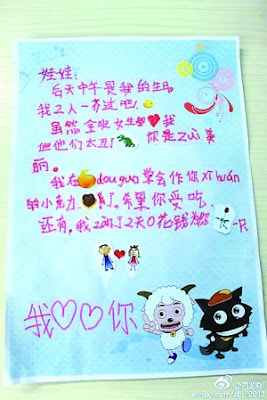 娃娃：
后天中午是我的生日
我2人一齐过吧！
虽然全班女生都 我
但他们太丑了 你是Zuì美
丽。
我在 douguo学会作你Xǐ huán
的小 了。希望你爱吃
还有，我2 了2天0花钱为你 一只
我♡♡你